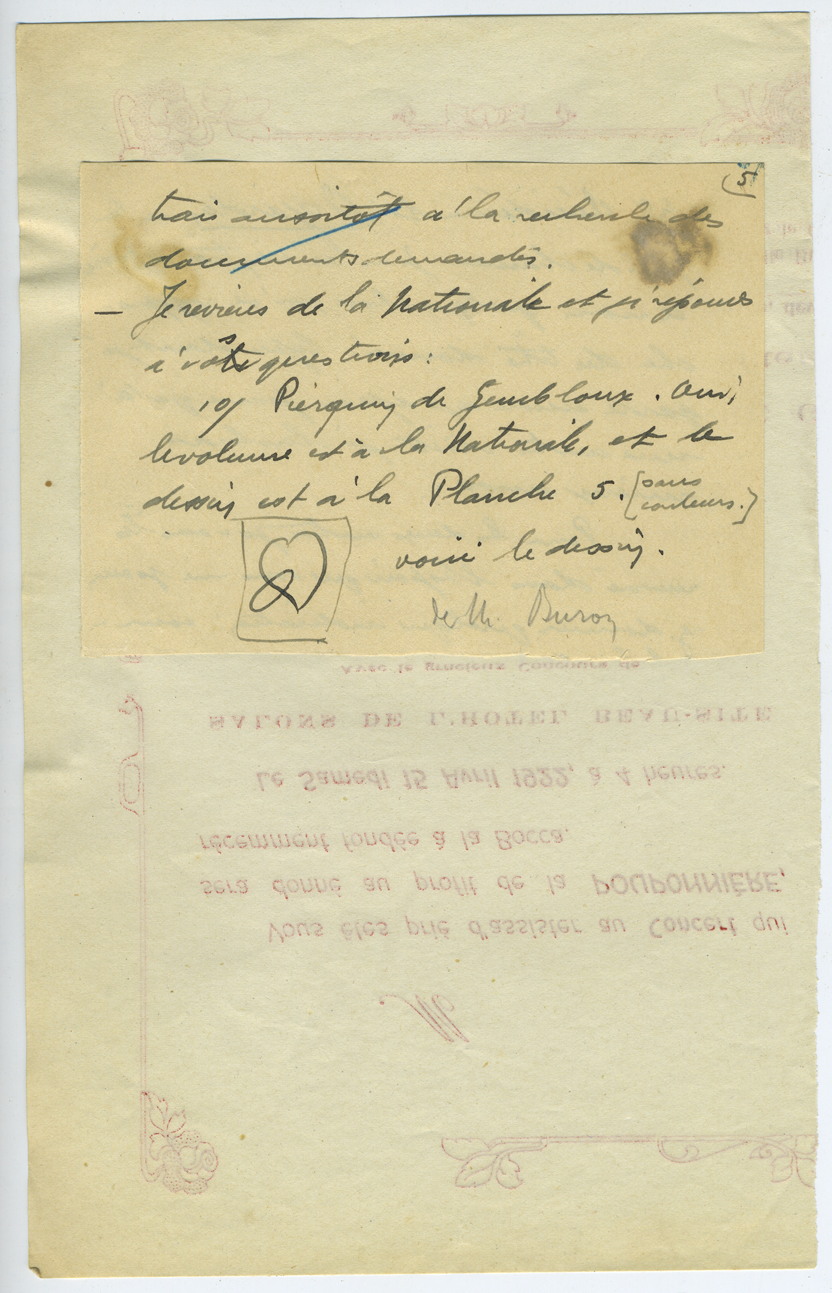 (5)
trais aussitôt à la recherche des
documents demandés.
— Je reviens de la Nationale et je réponds
à vos questions :
1o/ Pierquin de Gembloux. Oui,
le volume est à la Nationale, et le
dessin est à la Planche 5. [sans
couleurs.]
voici le dessin.
de M. Buron
Avec le gracieux Concours de
SALONS DE L'HOTEL BEAU-SITE
Le Samedi 15 Avril 1922, à 4 heures.
récemment fondée à la Bocca.
sera donné au profit de la POUPONNIÈRE,
Vous êtes prié d'assister au Concert qui
M